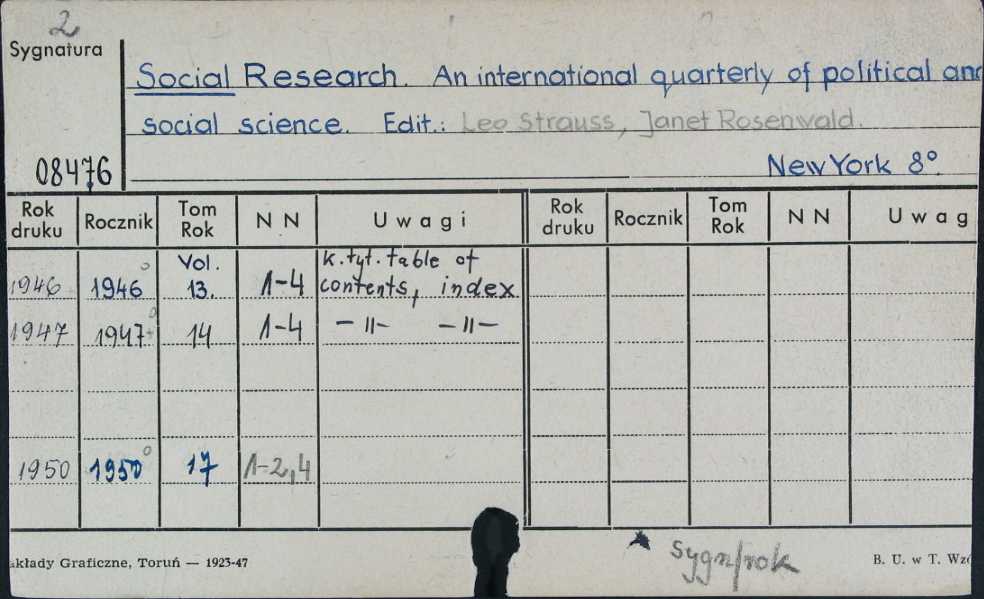 2
Sygnatura
Social Research. An international quarterly of political and
social science. Edit.: Leo Strauss, Janet Rosenwald.
08476
New York 8°
Rok druku Rocznik Tom Rok N N Uwagi Rok druku Rocznik Tom Rok N N Uwag
1946 1946° Vol. 13. 1-4 k.tyt. table of contents, index
1947 1947° 14 1-4 —〃— —〃—
1950 1950° 17 1-2,4
sygn/rok
akłady Graficzne, Toruń — 1923-47
B. U. w T. Wzó